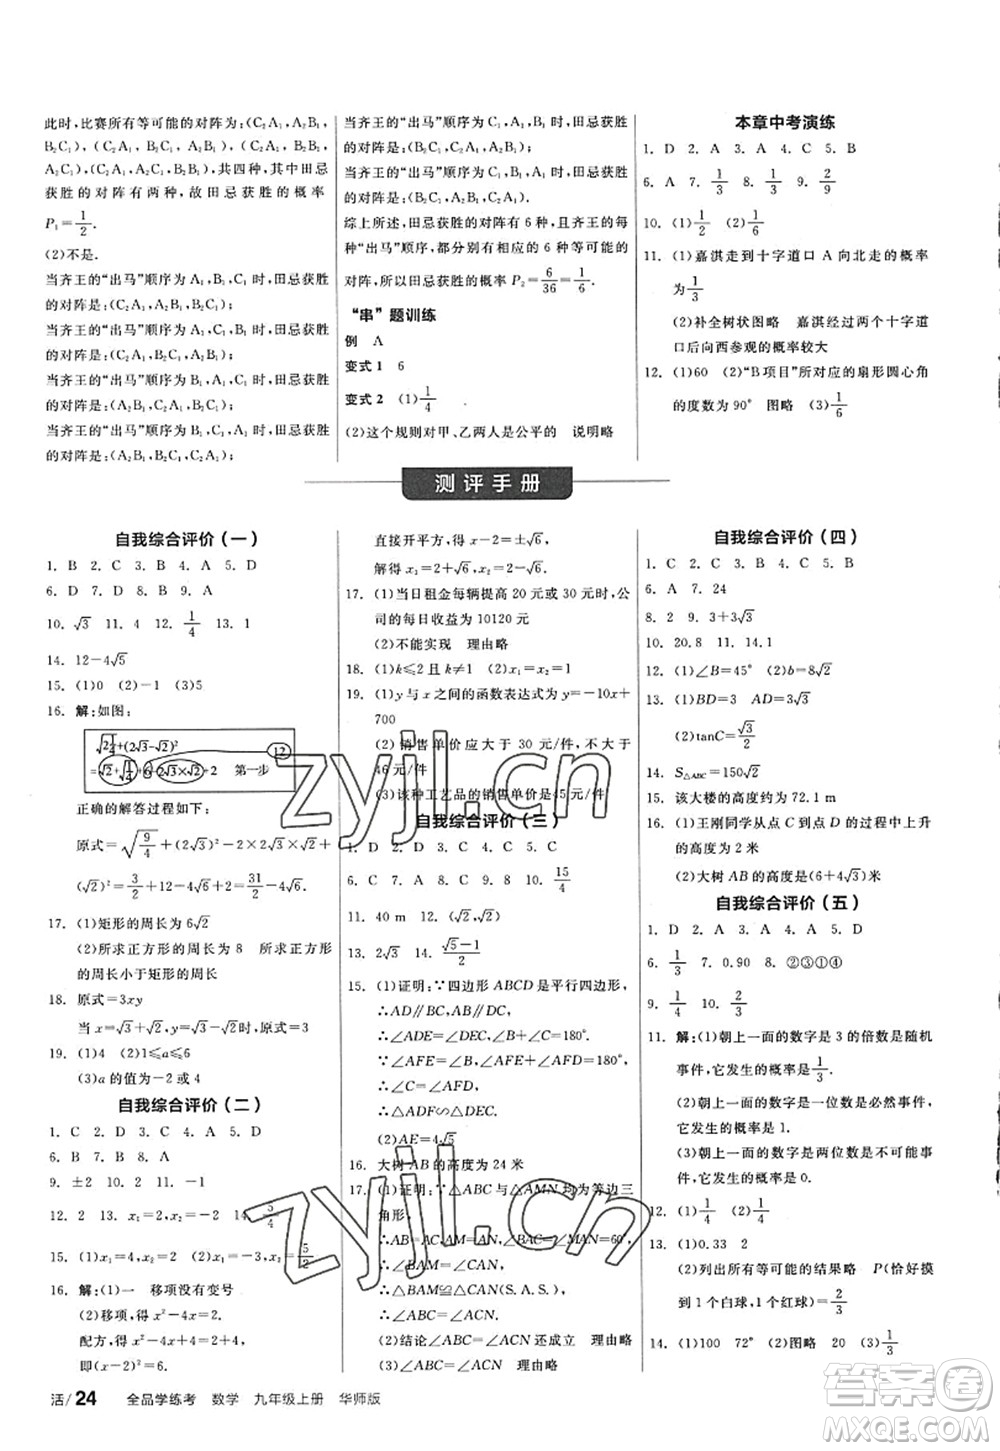 此时,比赛所有等可能的对阵为:(C₂A₁,A₂B₁,
B₂C₁),(C₂A₁,B₂B₁,A₂C₁),(C₂B₁,B₂A₁,
A₂C₁),(C₂B₁,A₂A₁,B₂C₁),共四种,其中田忌
获胜的对阵有两种,故田忌获胜的概率
P₁=1/2.
(2)不是.
当齐王的“出马”顺序为A₁,B₁,C₁时,田忌获胜
的对阵是:(C₂A₁,A₂B₁,B₂C₁);
当齐王的“出马”顺序为A₁,C₁,B₁时,田忌获胜
的对阵是:(C₂A₁,B₂C₁,A₂B₁);
当齐王的“出马”顺序为B₁,A₁,C₁时,田忌获胜
的对阵是:(A₂B₁,C₂A₁,B₂C₁);
当齐王的“出马”顺序为B₁,C₁,A₁时,田忌获胜
的对阵是:(A₂B₁,B₂C₁,C₂A₁);
当齐王的“出马”顺序为C₁,A₁,B₁时,田忌获胜
的对阵是:(B₂C₁,C₂A₁,A₂B₁);
当齐王的“出马”顺序为C₁,B₁,A₁时,田忌获胜
的对阵是:(B₂C₁,A₂B₁,C₂A₁).
综上所述,田忌获胜的对阵有6种,且齐王的6种
“出马”顺序,都分别有相应的6种等可能的
对阵,所以田忌获胜的概率P₂=6/36=1/6.
“串”题训练
例 A
变式1 6
变式2 (1)1/4
(2)这个规则对甲、乙两人是公平的 说明略
本章中考演练
1. D 2. A 3. A 4. C 5. B
6. A 7. 1/3 8. 1/3 9. 2/9
10. (1)1/2 (2)1/6
11. (1)嘉淇走到十字道口A向北走的概率
为1/3
(2)补全树状图略 嘉淇经过两个十字道
口后向西参观的概率较大
12. (1)60 (2)“B项目”所对应的扇形圆心角
的度数为90° 图略 (3)1/6
测评手册
自我综合评价(一)
1. B 2. C 3. B 4. A 5. D
6. D 7. D 8. B 9. A
10. √3 11. 4 12. 1/4 13. 1
14. 12-4√5
15. (1)0 (2)-1 (3)5
16. 解:如图:
√(2¼)+(2√3-√2)² 12
=√2+√(1/4)+6-2√3×√2+2 第一步
正确的解答过程如下:
原式=√(9/4)+(2√3)²-2×2√3×√2+
(√2)²=3/2+12-4√6+2=31/2-4√6.
17. (1)矩形的周长为6√2
(2)所求正方形的周长为8 所求正方形
的周长小于矩形的周长
18. 原式=3xy
当x=√3+√2,y=√3-√2时,原式=3
19. (1)4 (2)1≤a≤5
(3)a的值为-2或4
自我综合评价(二)
1. C 2. D 3. C 4. A 5. D
6. B 7. B 8. A
9. ±2 10. D 11. C
12. 2 13. x₁=-2,x₂=0 14. 5/4
15. (1)x₁=4,x₂=-2 (2)x₁=x₂=5/2
16. 解:(1)一 移项没有变号
(2)移项,得x²-4x=2.
配方,得x²-4x+4=2+4,
即(x-2)²=6.
直接开平方,得x-2=±√6,
解得x₁=2+√6,x₂=2-√6.
17. (1)当日租金每辆提高20元或30元时,公
司的每日收益为10120元
(2)不能实现 理由略
18. (1)k≤2且k≠1 (2)x₁=x₂=1
19. (1)y与x之间的函数表达式为y=-10x+
700
(2)销售单价应大于30元/件且不大于
46元/件
(3)该种工艺品的销售单价是45元/件
自我综合评价(三)
1. D 2. B 3. A 4. C 5. C
6. C 7. A 8. C 9. 8 10. 15/4
11. 40 m 12. (√2,√2)
13. 2√3 14. (√5-1)/2
15. (1)证明:∵四边形ABCD是平行四边形,
∴AD∥BC,AB∥CD,
∴∠ADE=∠DEC,∠B+∠C=180°.
∵∠AFE=∠B,∠AFE+∠AFD=180°,
∴∠C=∠AFD,
∴△ADF∽△DEC.
(2)AE=4√5
16. 大树AB的高度为24米
17. (1)证明:∵△ABC与△AMN均为等边三
角形,
∴AB=AC,AM=AN,∠BAC=∠MAN=60°,
∴∠BAM=∠CAN,
∴△BAM≌△CAN(S.A.S.),
∴∠ABC=∠ACN.
(2)结论∠ABC=∠ACN还成立 理由略
(3)∠ABC=∠ACN 理由略
自我综合评价(四)
1. C 2. C 3. D 4. C 5. C
6. A 7. 24
8. 2 9. 3+3√3
10. 20.8 11. 14.1
12. (1)∠B=45° (2)b=8√2
13. (1)BD=3 AD=3√3
(2)tanC=√3/2
14. S△ABC=150√2
15. 该大楼的高度约为72.1 m
16. (1)王刚同学从点C到点D的过程中上升
的高度为2米
(2)大树AB的高度是(6+4√3)米
自我综合评价(五)
1. D 2. A 3. A 4. A 5. D
6. 1/3 7. 0.90 8. ②③①④
9. 1/4 10. 3/10
11. 解:(1)朝上一面的数字是3的倍数是随机
事件,它发生的概率是1/3.
(2)朝上一面的数字是一位数是必然事件,
它发生的概率是1.
(3)朝上一面的数字是两位数是不可能事
件,它发生的概率是0.
12. (1)1/4 (2)1/4
13. (1)0.33 2
(2)列出所有等可能的结果略 P(恰好摸
到1个白球,1个红球)=4/9
14. (1)100 72° (2)图略 20 (3)1/6
活/24 全品学练考 数学 九年级上册 华师版
zyjl.cn
zyjl.cn
答案圈
MXQE.COM